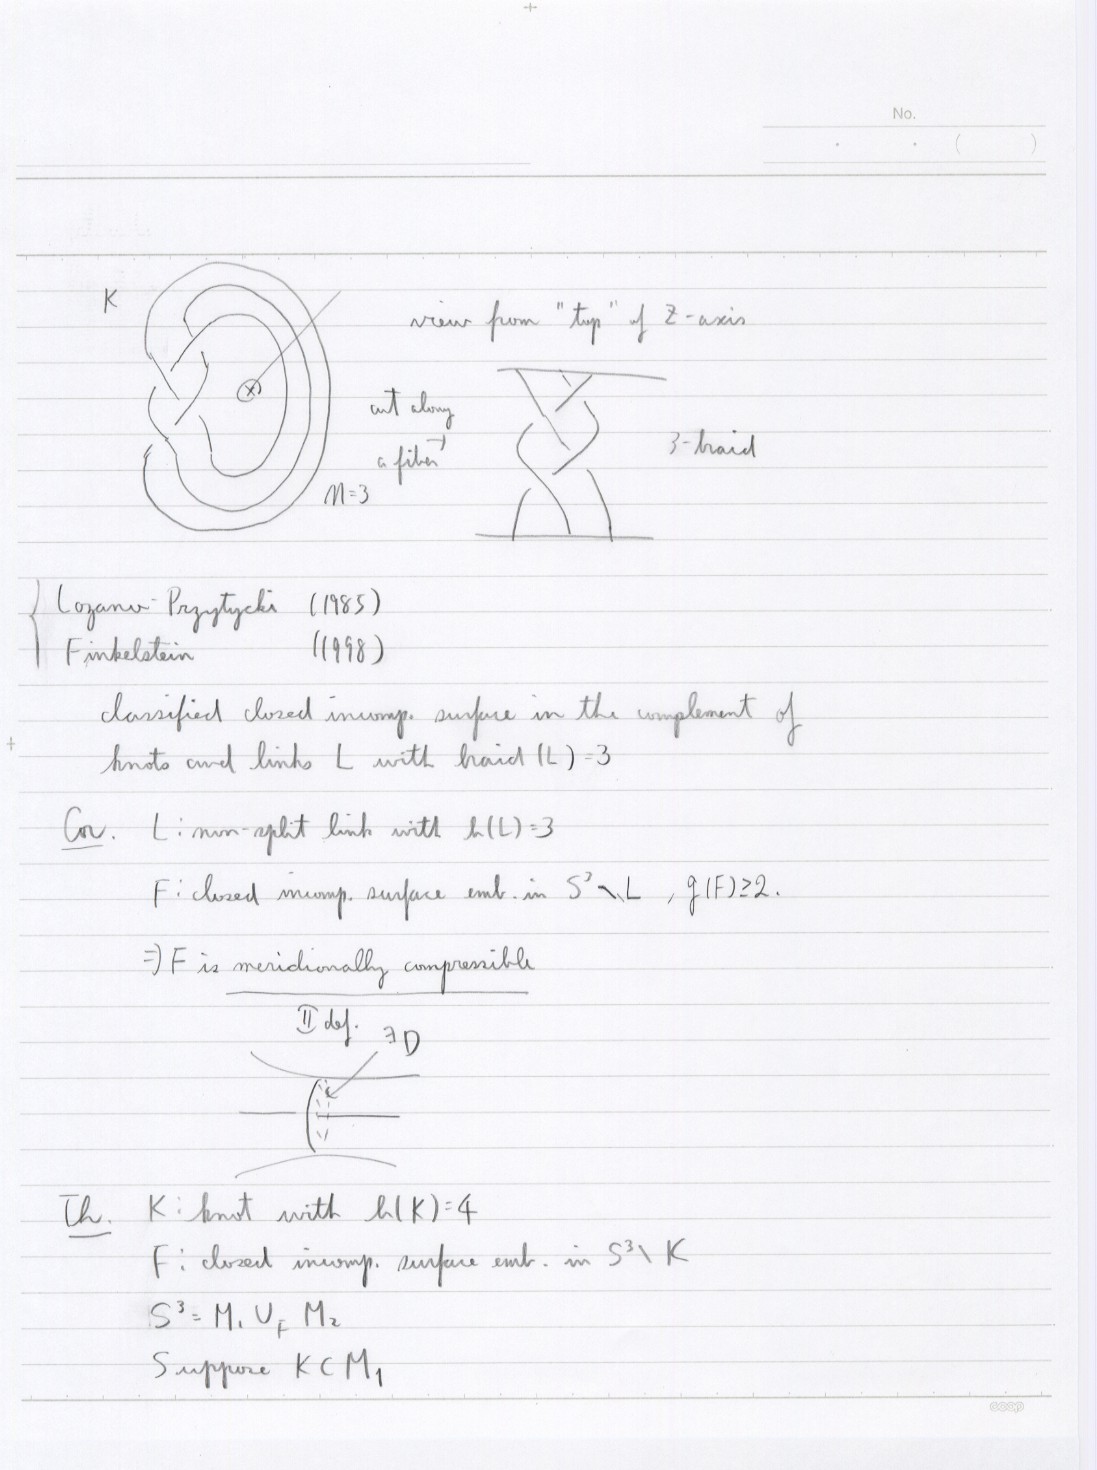 No.
( )
K
view from "top" of Z-axis
cut along
a fiber →
3-braid
n=3
Lozano-Przytycki (1985)
Finkelstein (1998)
classified closed incomp. surface in the complement of
knots and links L with braid(L)=3
Cor. L: non-split link with b(L)=3
F: closed incomp. surface emb. in S³∖L, g(F)≥2.
⇒ F is meridionally compressible
|| def.
∃D
Th. K: knot with b(K)=4
F: closed incomp. surface emb. in S³∖K
S³= M₁ ∪_F M₂
Suppose K⊂M₁